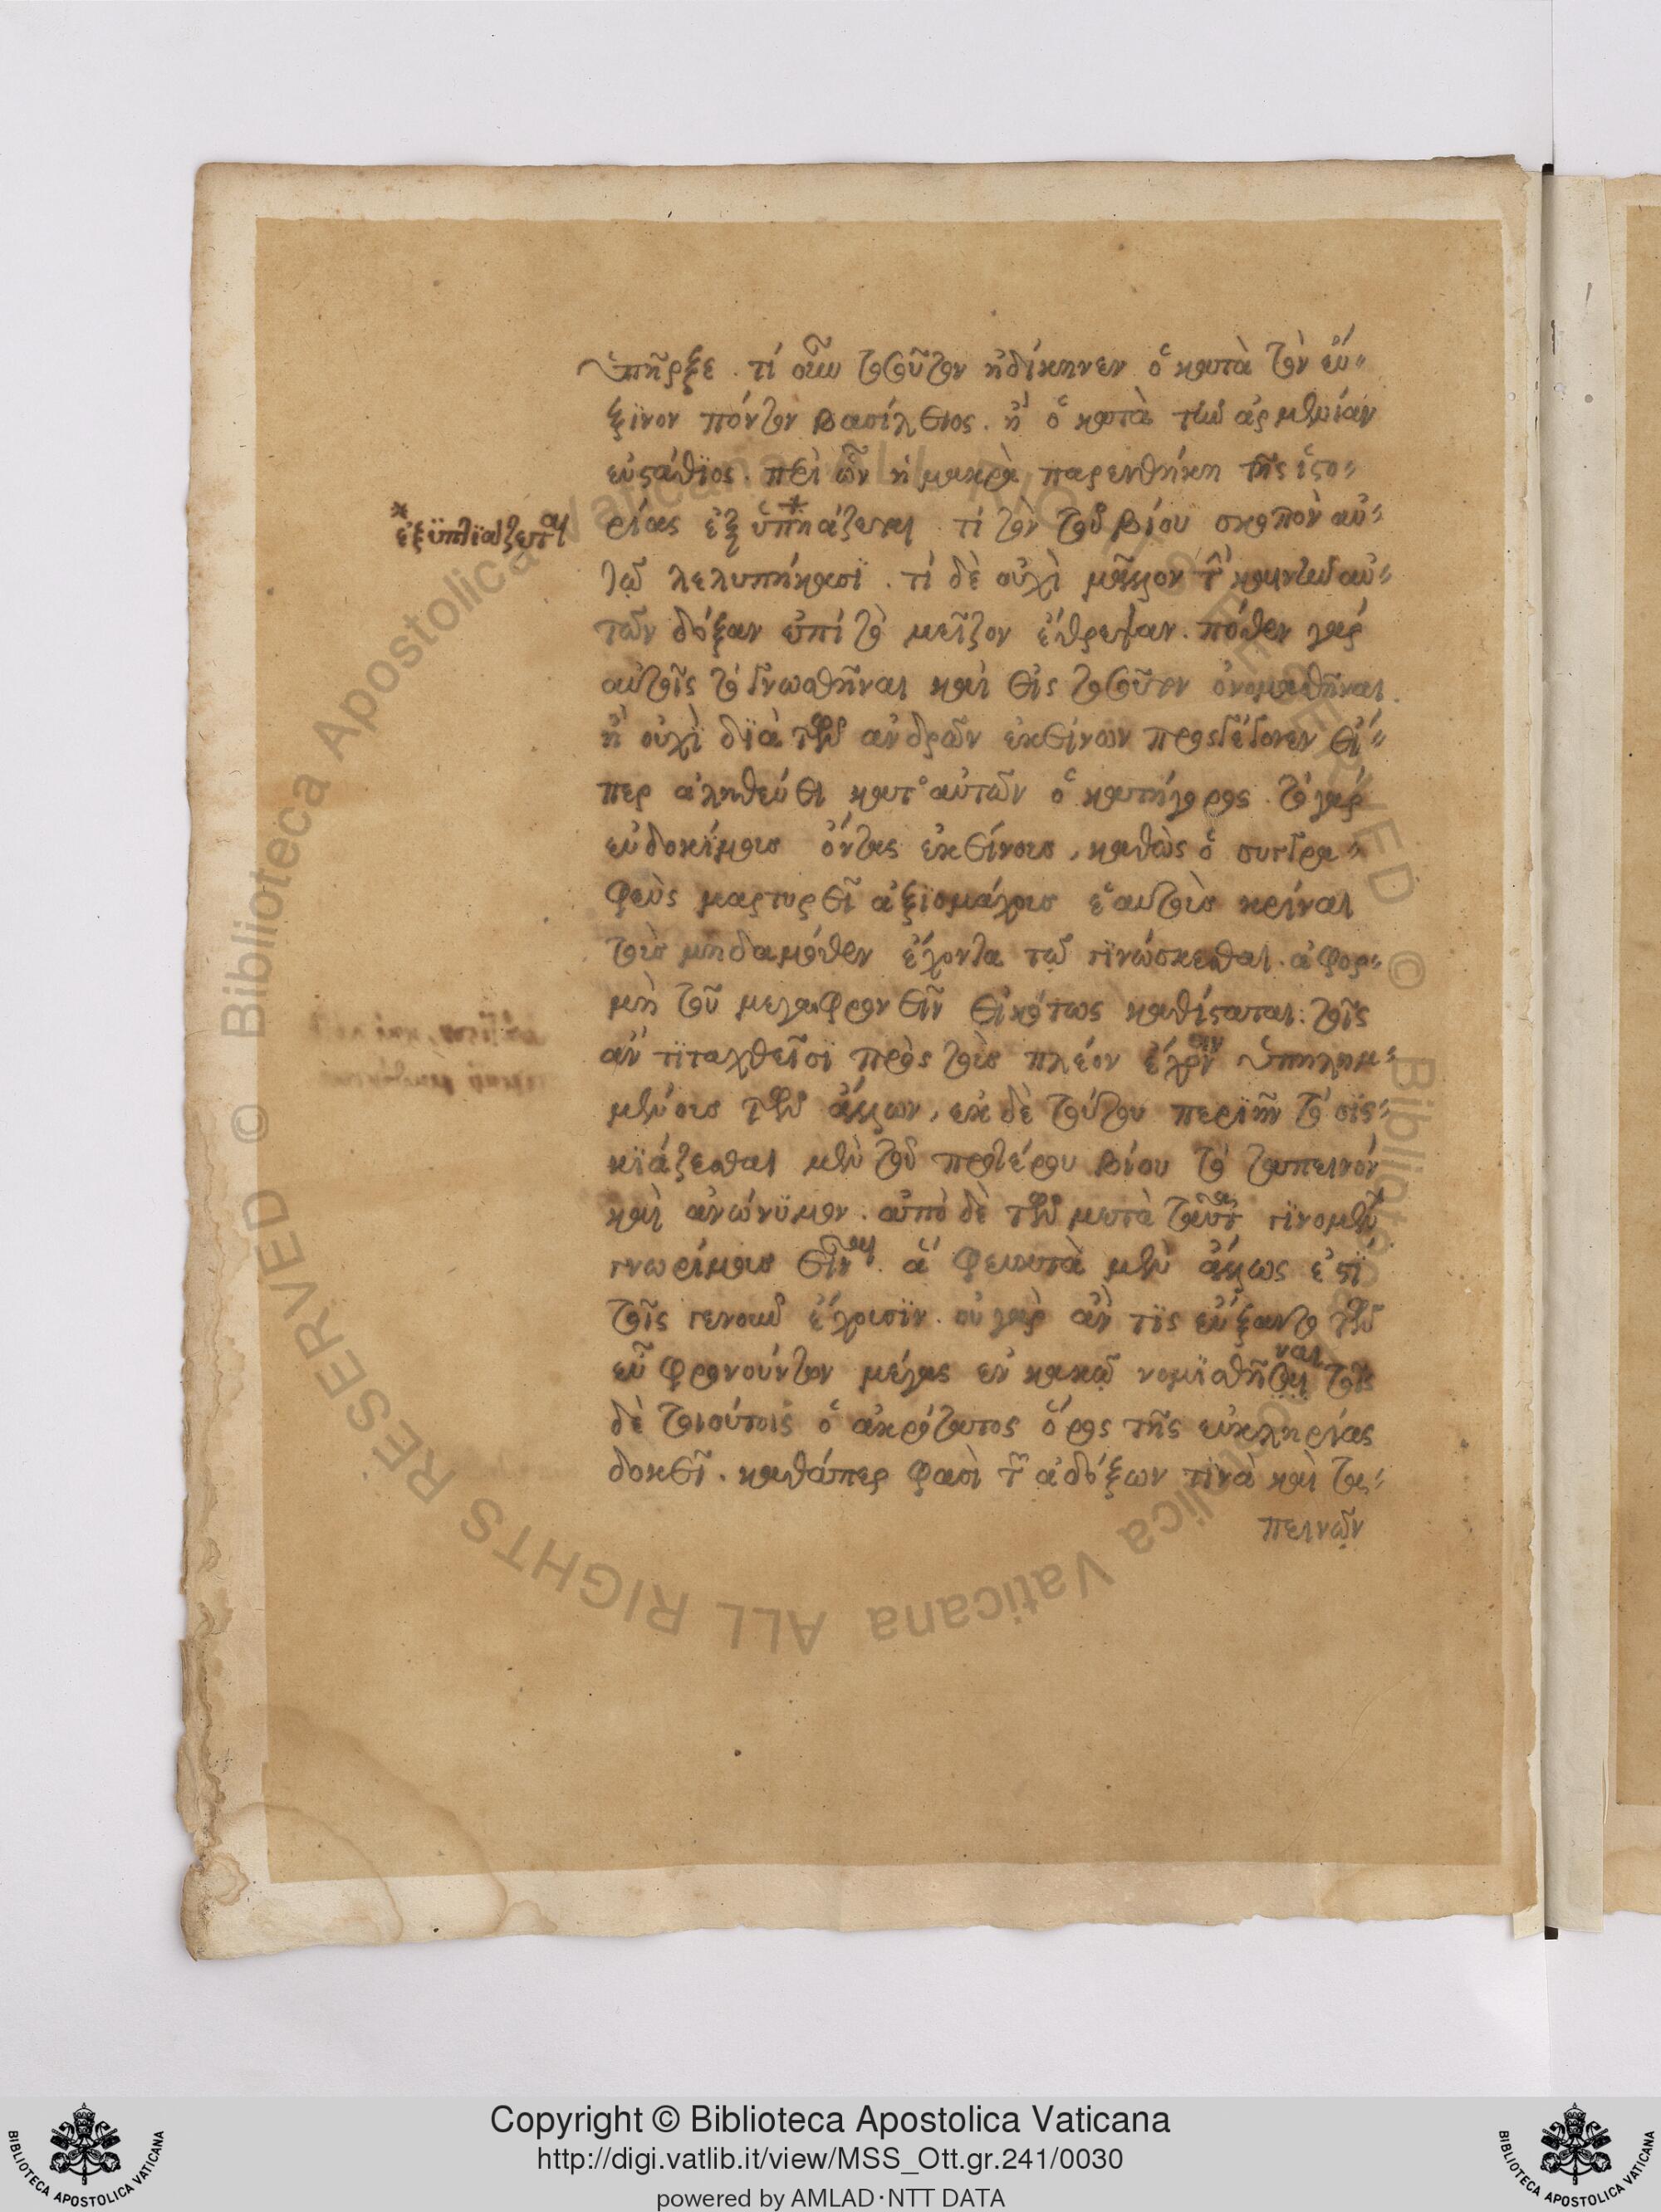 ὑπῆρξε. τί οὖν τοῦτον ἠδίκησεν ὁ κατὰ τὸν εὔ-
ξινον πόντον βασίλειος. ἢ ὁ κατὰ τὴν ἀρμενίαν
εὐστάθϊος. περὶ ὧν ἡ μακρὰ παρενθήκη τῆς ἱστο-
*
ἐξϋπτϊάζεται
ρίας ἐξ ὑπηάζεται* τί τὸν τοῦ βίου σκοπὸν αὐ-
τῷ λελυπήκασϊ. τί δὲ οὐχὶ μᾶλλον τὴν καινὴν αὐ-
τῶν δόξαν ἐπί τὸ μεῖζον ἔθρεψαν. πόθεν γάρ
αὐτοῖς τὸ γνωσθῆναι καὶ εἰς τοῦτον ὀνομασθῆναι.
ἢ οὐχὶ δϊὰ τῶν ἀνδρῶν ἐκείνων προσγέγονεν εἴ-
περ ἀληθεύει κατ' αὐτῶν ὁ κατήγορος. τὸ γάρ
εὐδοκίμους ὄντας ἐκείνους, καθὼς ὁ συγγρα-
φεὺς μαρτυρεῖ ἀξϊομάχους ἑαυτοὺς κρίναι
τοὺς μηδαμόθεν ἔχοντα τῷ γϊνώσκεσθαι. ἀφορ-
μὴ τοῦ μεγαφρονεῖν εἰκότως καθίσταται: τοῖς
ἀντϊταχθεῖσϊ πρὸς τοὺς πλέον ἔχειν ὑπηλημ-
μένους τῶν ἄλλων, ἐκ δὲ τούτου περϊῆν τὸ σϊς-
κϊάζεσθαι μὲν τοῦ προτέρου βίου τὸ ταπεινόν
καὶ ἀνώνϋμον. ἀπὸ δὲ τῶν μετὰ ταῦτα γϊνομένων
γνωρίμους εἶναι. ἃ φευκτὰ μὲν ἄλλως ἐστϊ
τοῖς γενοῦν ἔχουσϊν. οὐ γὰρ ἄν τϊς εὔξαιτο τῶν
εὖ φρονούντων μέγας ἐν κακῷ νομϊσθῆναι τοῖς
δὲ τοιούτοις ὁ ἀκρότατος ὅρος τῆς εὐκληρίας
δοκεῖ. καθάπερ φασὶ τῶν ἀδόξων τϊνὰ καὶ τα-
πεινῶν
Copyright © Biblioteca Apostolica Vaticana
http://digi.vatlib.it/view/MSS_Ott.gr.241/0030
powered by AMLAD·NTT DATA
BIBLIOTECA APOSTOLICA VATICANA
BIBLIOTECA APOSTOLICA VATICANA
© Biblioteca Apostolica Vaticana ALL RIGHTS RESERVED © Biblioteca Apostolica Vaticana ALL RIGHTS RESERVED